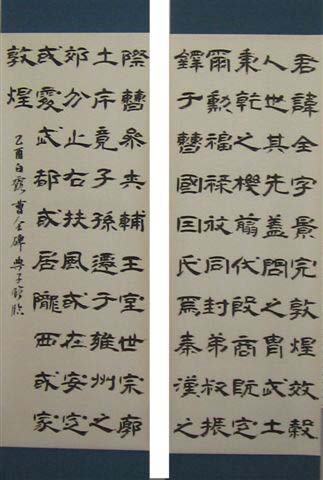 君諱全字景完敦煌效穀
人也其先蓋周之胄武王
秉乾之機翦伐殷商既定
爾勳福祿攸同封弟叔振
鐸于曹國因氏焉秦漢之
際曹參夾輔王室世宗廓
土斥竟子孫遷于雍州之
郊分止右扶風或在安定
或處武都或居隴西或家
敦煌
乙酉白露 曹全碑 臨